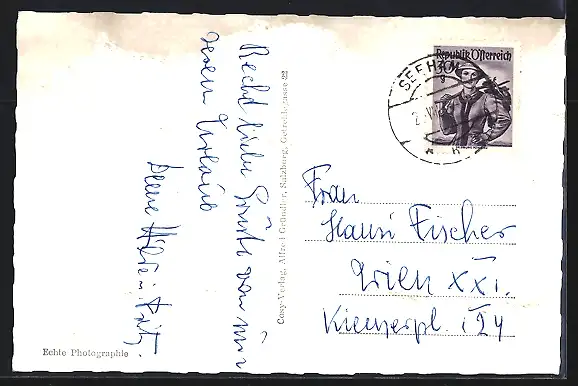 Recht liebe Grüße von
Deine Hilde
Cosy-Verlag, Alfred Gründler, Salzburg, Getreidegasse 22
Echte Photographie
Republik Österreich
SEEHAM
Frau
Hansi Fischer
Wien XXI.
Kinzerpl. 24